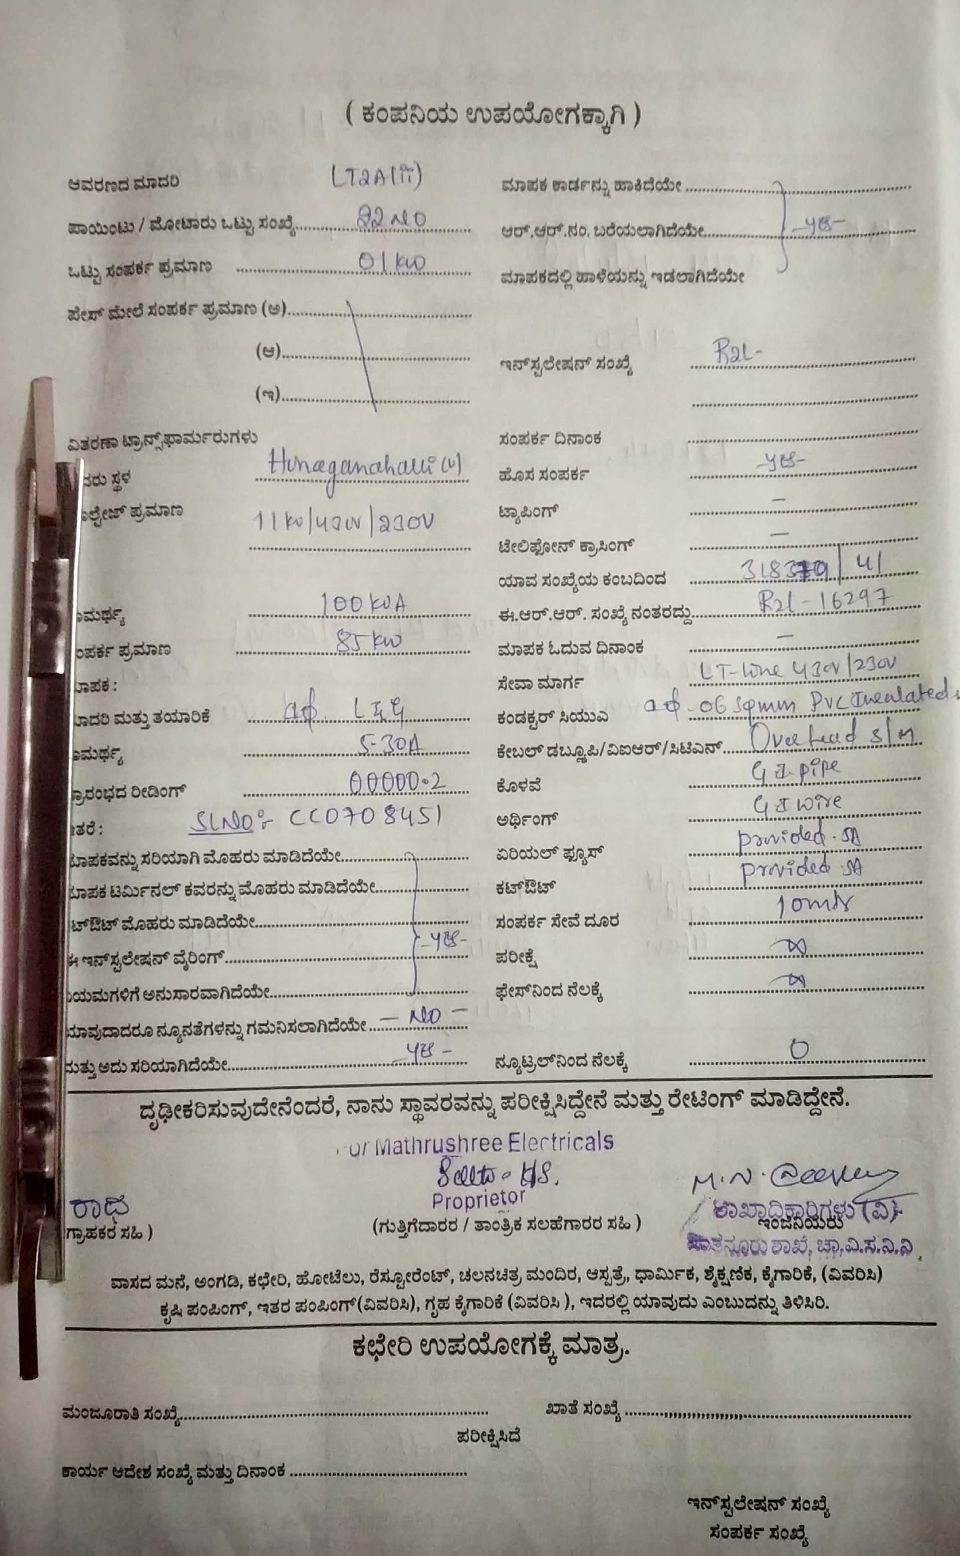 ( ಕಂಪನಿಯ ಉಪಯೋಗಕ್ಕಾಗಿ )
ಆವರಣದ ಮಾದರಿ LT2A(ii)
ಪಾಯಿಂಟು / ಮೋಟಾರು ಒಟ್ಟು ಸಂಖ್ಯೆ 02 NO
ಒಟ್ಟು ಸಂಪರ್ಕ ಪ್ರಮಾಣ 01 kW
ಪೇಸ್ ಮೇಲೆ ಸಂಪರ್ಕ ಪ್ರಮಾಣ (ಅ)
(ಆ)
(ಇ)
ವಿತರಣಾ ಟ್ರಾನ್ಸ್‌ಫಾರ್ಮರುಗಳು
ನರು ಸ್ಥಳ Hunaganahalli (v)
ಲ್ಟೇಜ್ ಪ್ರಮಾಣ 11kv/430v/230V
ಮರ್ಥ್ಯ 100 kVA
ಂಪರ್ಕ ಪ್ರಮಾಣ 85 kW
ಾಪಕ :
ಾದರಿ ಮತ್ತು ತಯಾರಿಕೆ L&G
ಾಮರ್ಥ್ಯ 5-30A
್ರಾರಂಭದ ರೀಡಿಂಗ್ 00000.2
ತರೆ : SLNO:- CC0708451
ಾಪಕವನ್ನು ಸರಿಯಾಗಿ ಮೊಹರು ಮಾಡಿದೆಯೇ
ಾಪಕ ಟರ್ಮಿನಲ್ ಕವರನ್ನು ಮೊಹರು ಮಾಡಿದೆಯೇ
ಟ್‌ಔಟ್ ಮೊಹರು ಮಾಡಿದೆಯೇ
ಈ ಇನ್‌ಸ್ಟಲೇಷನ್ ವೈರಿಂಗ್ -yes-
ಿಯಮಗಳಿಗೆ ಅನುಸಾರವಾಗಿದೆಯೇ
ಯಾವುದಾದರೂ ನ್ಯೂನತೆಗಳನ್ನು ಗಮನಿಸಲಾಗಿದೆಯೇ - NO -
ಮತ್ತು ಅದು ಸರಿಯಾಗಿದೆಯೇ -yes-
ಮಾಪಕ ಕಾರ್ಡನ್ನು ಹಾಕಿದೆಯೇ
ಆರ್.ಆರ್.ನಂ. ಬರೆಯಲಾಗಿದೆಯೇ -yes-
ಮಾಪಕದಲ್ಲಿ ಹಾಳೆಯನ್ನು ಇಡಲಾಗಿದೆಯೇ
ಇನ್‌ಸ್ಟಲೇಷನ್ ಸಂಖ್ಯೆ R2L-
ಸಂಪರ್ಕ ದಿನಾಂಕ
ಹೊಸ ಸಂಪರ್ಕ -yes-
ಟ್ಯಾಪಿಂಗ್ —
ಟೇಲಿಫೋನ್ ಕ್ರಾಸಿಂಗ್ —
ಯಾವ ಸಂಖ್ಯೆಯ ಕಂಬದಿಂದ
ಈ.ಆರ್.ಆರ್. ಸಂಖ್ಯೆ ನಂತರದ್ದು R2L-16297
ಮಾಪಕ ಓದುವ ದಿನಾಂಕ —
ಸೇವಾ ಮಾರ್ಗ LT-Line 430V/230V
ಕಂಡಕ್ಟರ್ ಸಿಯುವಿ 2φ-06 sqmm PVC Insulated
ಕೇಬಲ್ ಡಬ್ಲೂಪಿ/ವಿಐಆರ್/ಸಿಟಿಎನ್ Overhead S/M
ಕೊಳವೆ G.I-pipe
ಅರ್ಥಿಂಗ್ G I wire
ಏರಿಯಲ್ ಫ್ಯೂಸ್ provided-5A
ಕಟ್‌ಔಟ್ provided-5A
ಸಂಪರ್ಕ ಸೇವೆ ದೂರ 10 mtr
ಪರೀಕ್ಷೆ
ಫೇಸ್‌ನಿಂದ ನೆಲಕ್ಕೆ
ನ್ಯೂಟ್ರಲ್‌ನಿಂದ ನೆಲಕ್ಕೆ 0
ದೃಢೀಕರಿಸುವುದೇನೆಂದರೆ, ನಾನು ಸ್ಥಾವರವನ್ನು ಪರೀಕ್ಷಿಸಿದ್ದೇನೆ ಮತ್ತು ರೇಟಿಂಗ್ ಮಾಡಿದ್ದೇನೆ.
or Mathrushree Electricals
Proprietor
ರಾಧ
ಗ್ರಾಹಕರ ಸಹಿ )
(ಗುತ್ತಿಗೆದಾರರ / ತಾಂತ್ರಿಕ ಸಲಹೆಗಾರರ ಸಹಿ )
ಶಾಖಾಧಿಕಾರಿಗಳು (ವಿ)
ಇಂಜಿನಿಯರು
ಸಾತನೂರು ಶಾಖೆ, ಚಾ.ವಿ.ಸ.ನಿ.ನಿ.
ವಾಸದ ಮನೆ, ಅಂಗಡಿ, ಕಛೇರಿ, ಹೋಟೆಲು, ರೆಸ್ಟೋರೆಂಟ್, ಚಲನಚಿತ್ರ ಮಂದಿರ, ಆಸ್ಪತ್ರೆ, ಧಾರ್ಮಿಕ, ಶೈಕ್ಷಣಿಕ, ಕೈಗಾರಿಕೆ, (ವಿವರಿಸಿ)
ಕೃಷಿ ಪಂಪಿಂಗ್, ಇತರ ಪಂಪಿಂಗ್(ವಿವರಿಸಿ), ಗೃಹ ಕೈಗಾರಿಕೆ (ವಿವರಿಸಿ ), ಇದರಲ್ಲಿ ಯಾವುದು ಎಂಬುದನ್ನು ತಿಳಿಸಿರಿ.
ಕಛೇರಿ ಉಪಯೋಗಕ್ಕೆ ಮಾತ್ರ.
ಮಂಜೂರಾತಿ ಸಂಖ್ಯೆ ಖಾತೆ ಸಂಖ್ಯೆ
ಪರೀಕ್ಷಿಸಿದೆ
ಕಾರ್ಯ ಆದೇಶ ಸಂಖ್ಯೆ ಮತ್ತು ದಿನಾಂಕ
ಇನ್‌ಸ್ಟಲೇಷನ್ ಸಂಖ್ಯೆ
ಸಂಪರ್ಕ ಸಂಖ್ಯೆ